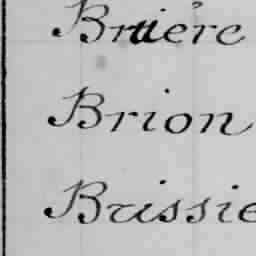 Bruère
Brion
Brissie